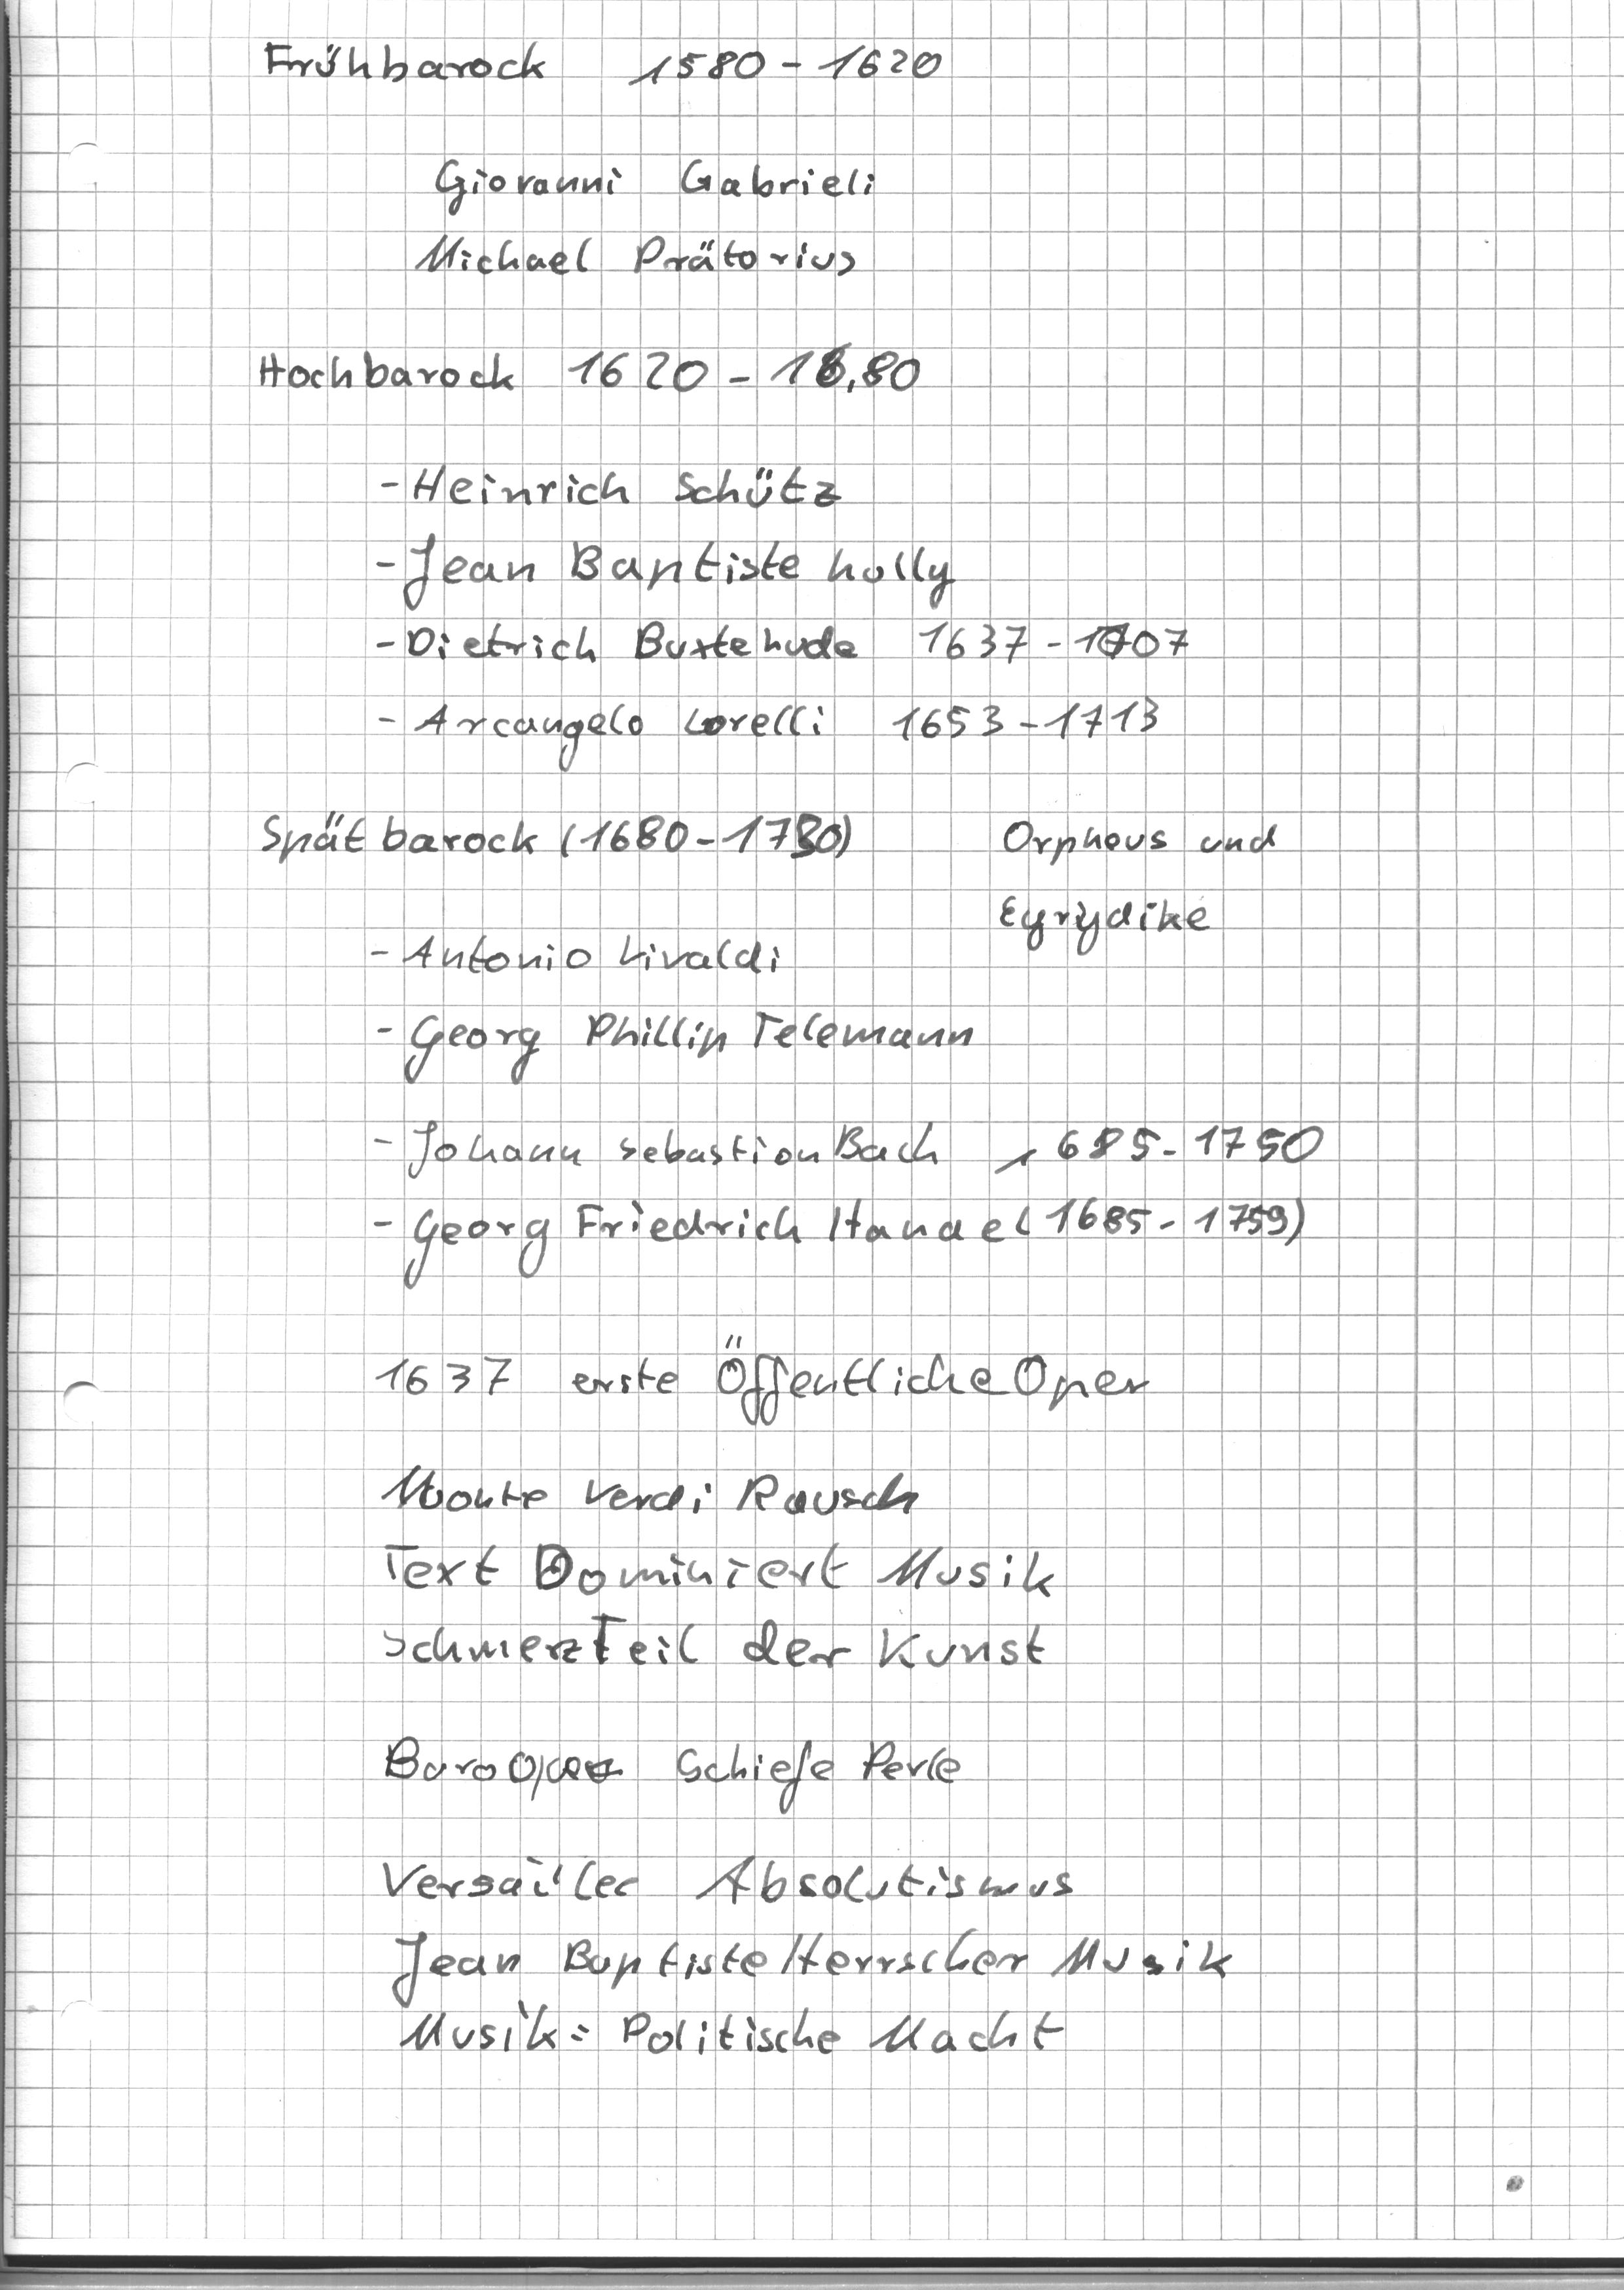 Frühbarock 1580 - 1620
Giovanni Gabrieli
Michael Prätorius
Hochbarock 1620 - 16,80
- Heinrich Schütz
- Jean Baptiste Lully
- Dietrich Buxtehude 1637 - 1707
- Arcangelo Corelli 1653 - 1713
Spätbarock (1680 - 1730) Orpheus und
Eyrydike
- Antonio Vivaldi
- Georg Phillip Telemann
- Johann Sebastian Bach 1685 - 1750
- Georg Friedrich Handel (1685 - 1759)
1637 erste Öffentliche Oper
Monte Verdi Rausch
Text Dominiert Musik
Schmerz Teil der Kunst
Schiefe Perle
Versailles Absolutismus
Jean Baptiste Herrscher Musik
Musik = Politische Macht